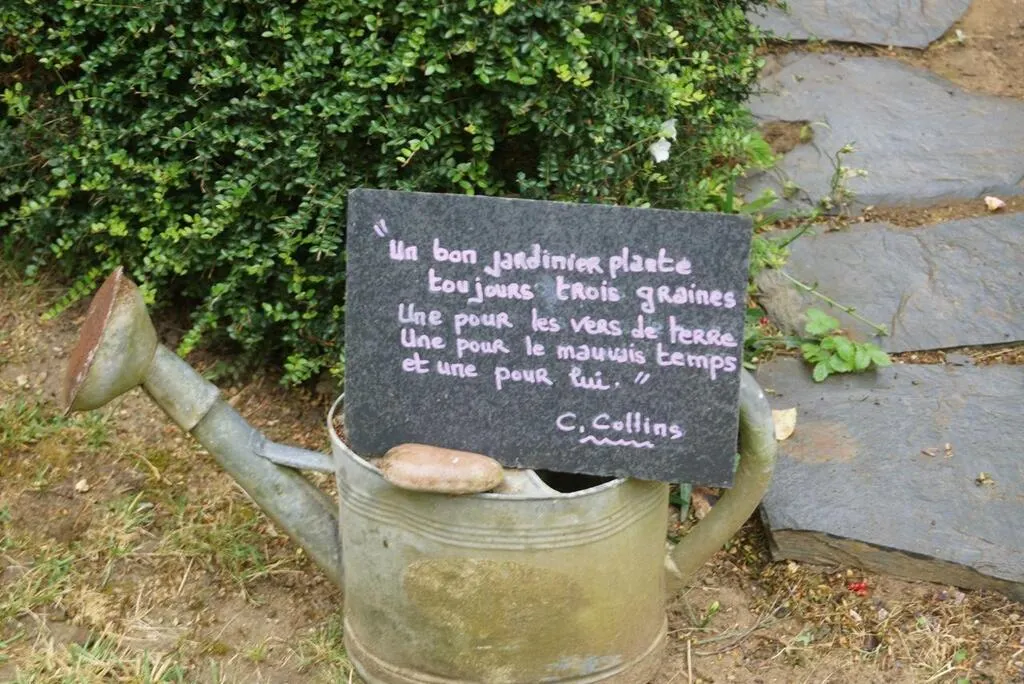 "Un bon jardinier plante
toujours trois graines
Une pour les vers de terre
Une pour le mauvais temps
et une pour lui."
C. Collins